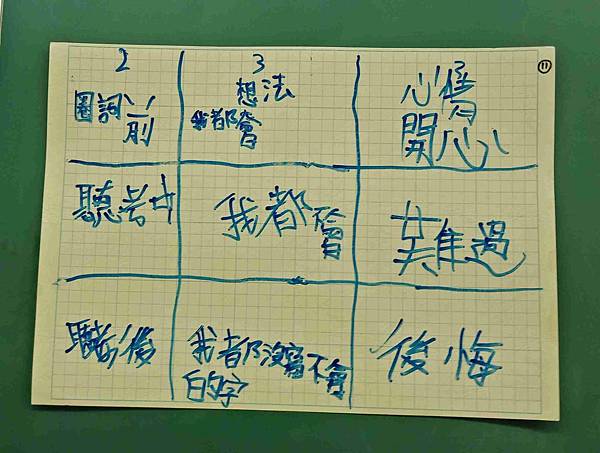 2
3
⑪
圈詞前
想法
我都會
心情
開心
聽考中
我都不會
難過
聽考後
我都沒寫不會
的字
後悔